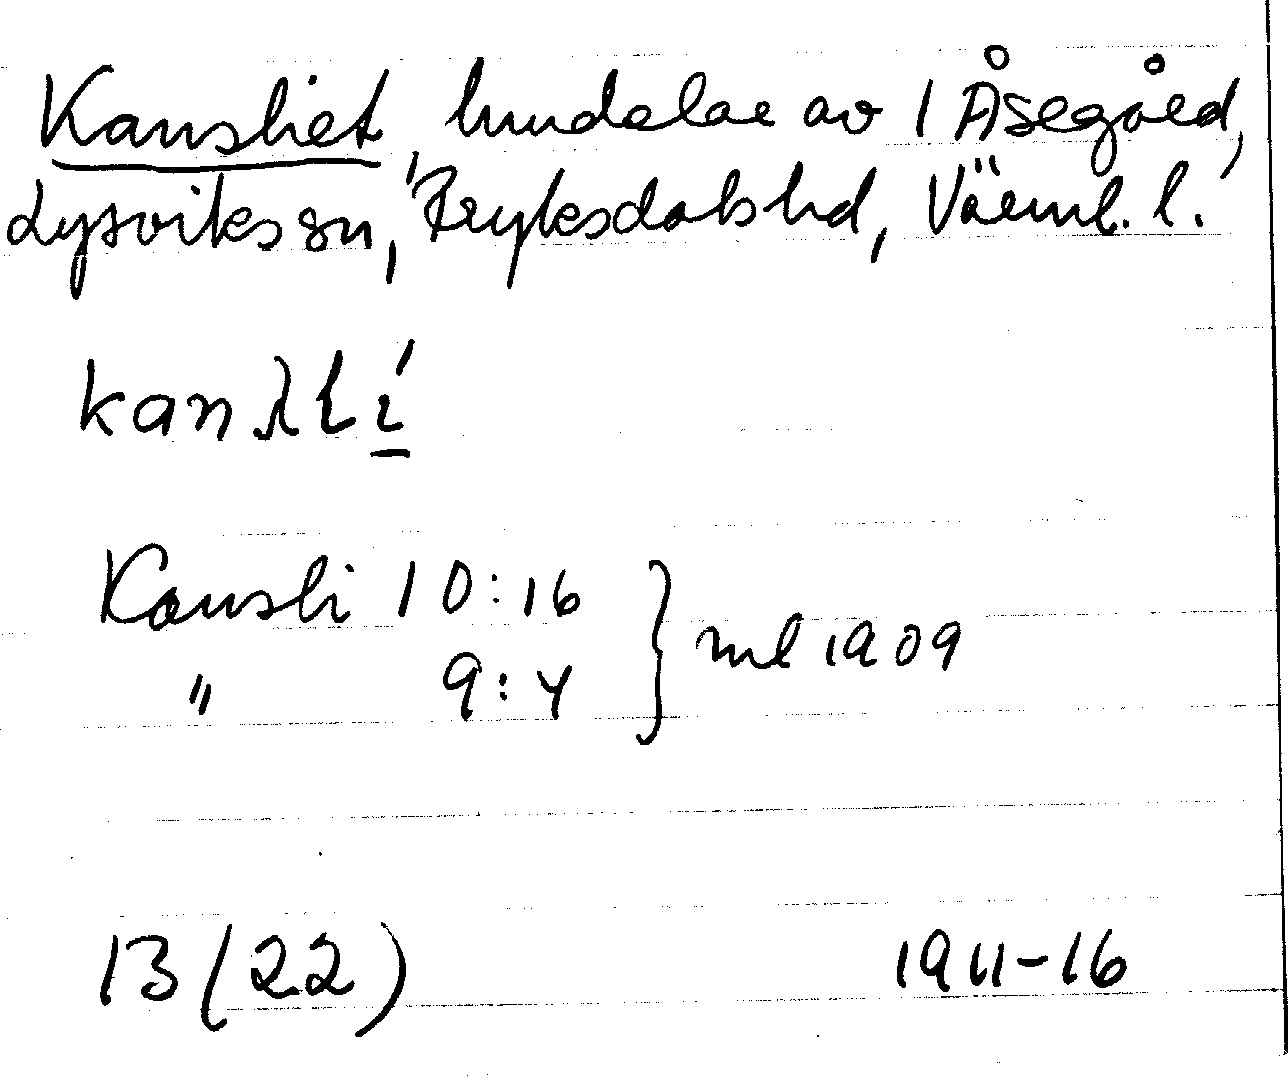 Kansliet, hmdelar av 1 Åsegård,
Lysviks sn, Fryksdals hd, Värml. l.
Kansli 10:16
" 9:4 } ml 1909
13 (22) 1911-16